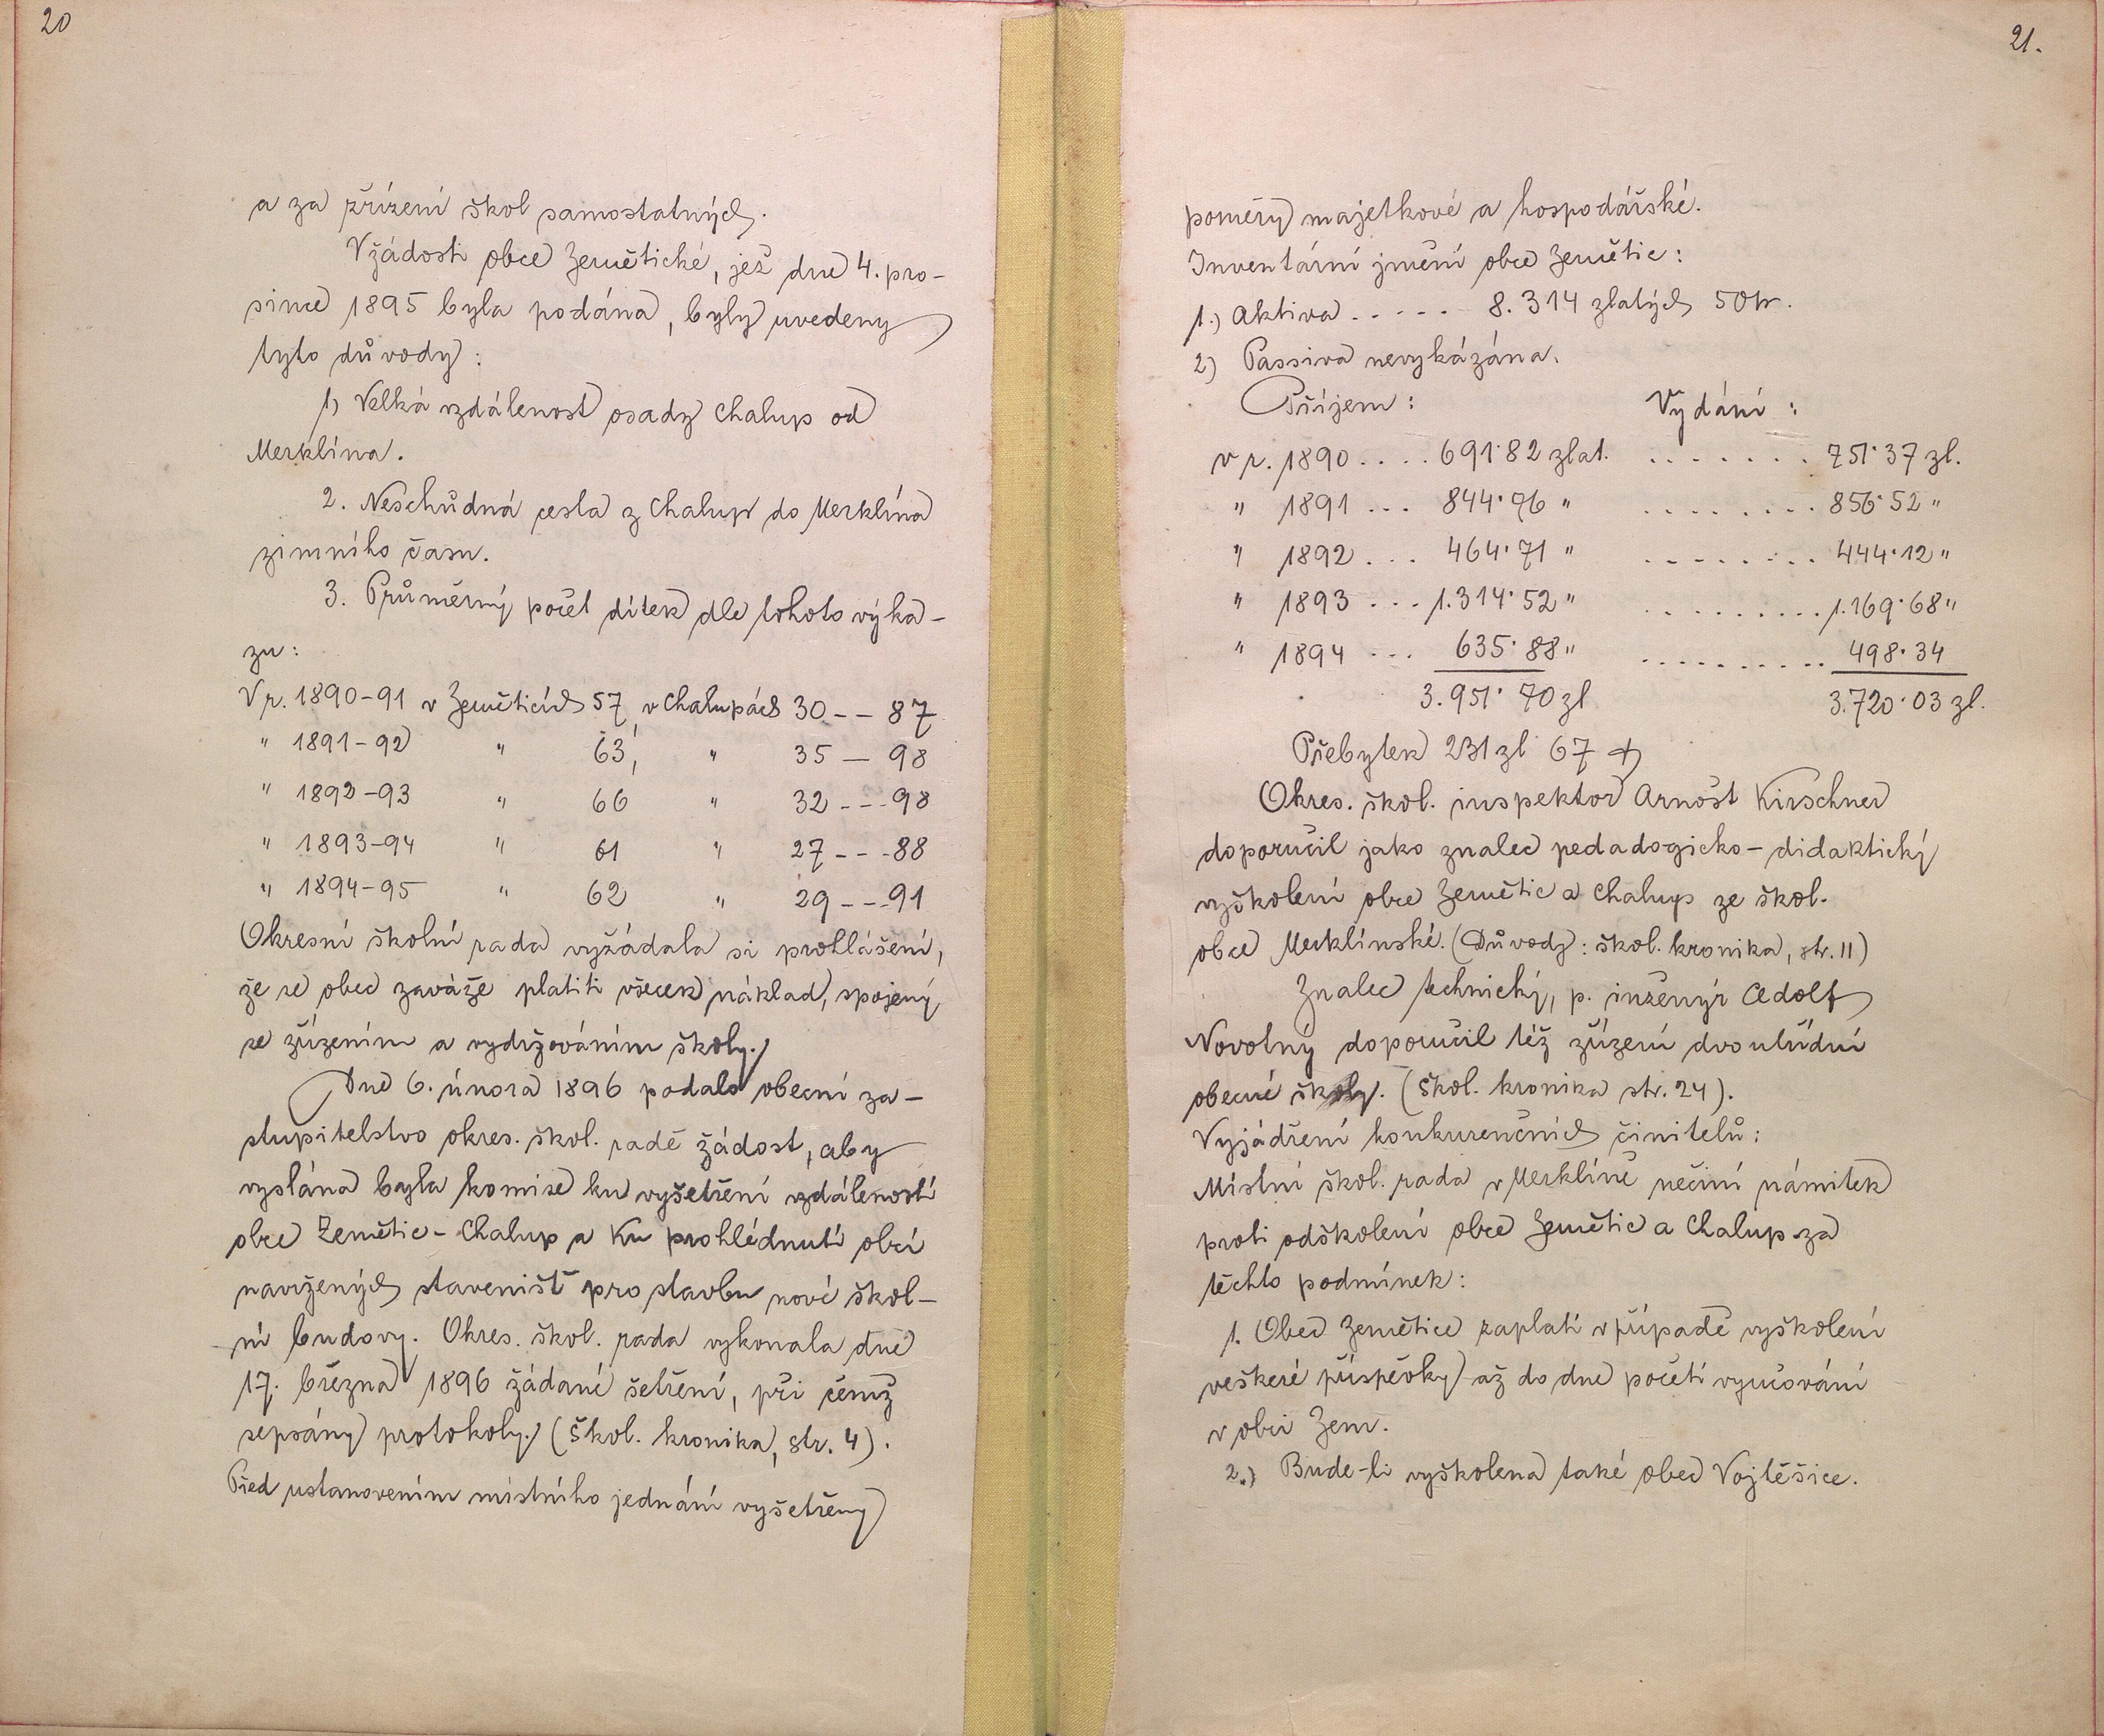 20
a za zřízení škol samostatných.
V žádosti obce Zemětické, jež dne 4. pro-
since 1895 byla podána, byly uvedeny
tyto důvody:
1) Velká vzdálenost osady Chalup od
Merklína.
2. Neschůdná cesta z Chalup do Merklína
zimního času.
3. Průměrný počet dítek dle tohoto výka-
zu:
V r. 1890-91 v Zemětících 57, v Chalupách 30 -- 87
" 1891-92 " 63, " 35 — 98
" 1892-93 " 66 " 32 --- 98
" 1893-94 " 61 " 27 --- 88
" 1894-95 " 62 " 29 --- 91
Okresní školní rada vyžádala si prohlášení,
že se obec zaváže platiti všecek náklad, spojený
se zřízením a vydržováním školy.
Dne 6. února 1896 podalo obecní za-
stupitelstvo okres. škol. radě žádost, aby
vyslána byla komise ku vyšetření vzdáleností
obce Zemětic - Chalup a ku prohlédnutí obcí
navržených stavenišť pro stavbu nové škol-
ní budovy. Okres. škol. rada vykonala dne
17. března 1896 žádané šetření, při čemž
sepsány protokoly. (Škol. kronika, str. 4).
Před ustanovením místního jednání vyšetřeny
21.
poměry majetkové a hospodářské.
Inventární jmění obce Zemětic:
1.) Aktiva ..... 8.314 zlatých 50 kr.
2) Passiva nevykázána.
Příjem: Vydání:
v r. 1890 .... 691·82 zlat. ....... 751·37 zl.
" 1891 ... 844·76 " ........ 856·52 "
" 1892 ... 464·71 " ........ 444·12 "
" 1893 ... 1.314·52 " ......... 1.169·68 "
" 1894 ... 635·88 " .......... 498·34
3.951·70 zl 3.720·03 zl.
Přebytek 231 zl 67 kr
Okres. škol. inspektor Arnošt Kirschner
doporučil jako znalec pedadogicko-didaktický
vyškolení obce Zemětic a Chalup ze škol.
obce Merklínské. (Důvody: škol. kronika, str. 11)
Znalec technický, p. inženýr Adolf
Novotný doporučil též zřízení dvoutřídní
obecné školy. (Škol. kronika str. 24).
Vyjádření konkurenčních činitelů:
Místní škol. rada v Merklíně nečiní námitek
proti odškolení obce Zemětic a Chalup za
těchto podmínek:
1. Obec Zemětice zaplatí v případě vyškolení
veškeré příspěvky až do dne početí vyučování
v obci Zem.
2.) Bude-li vyškolena také obec Vojtěšice.